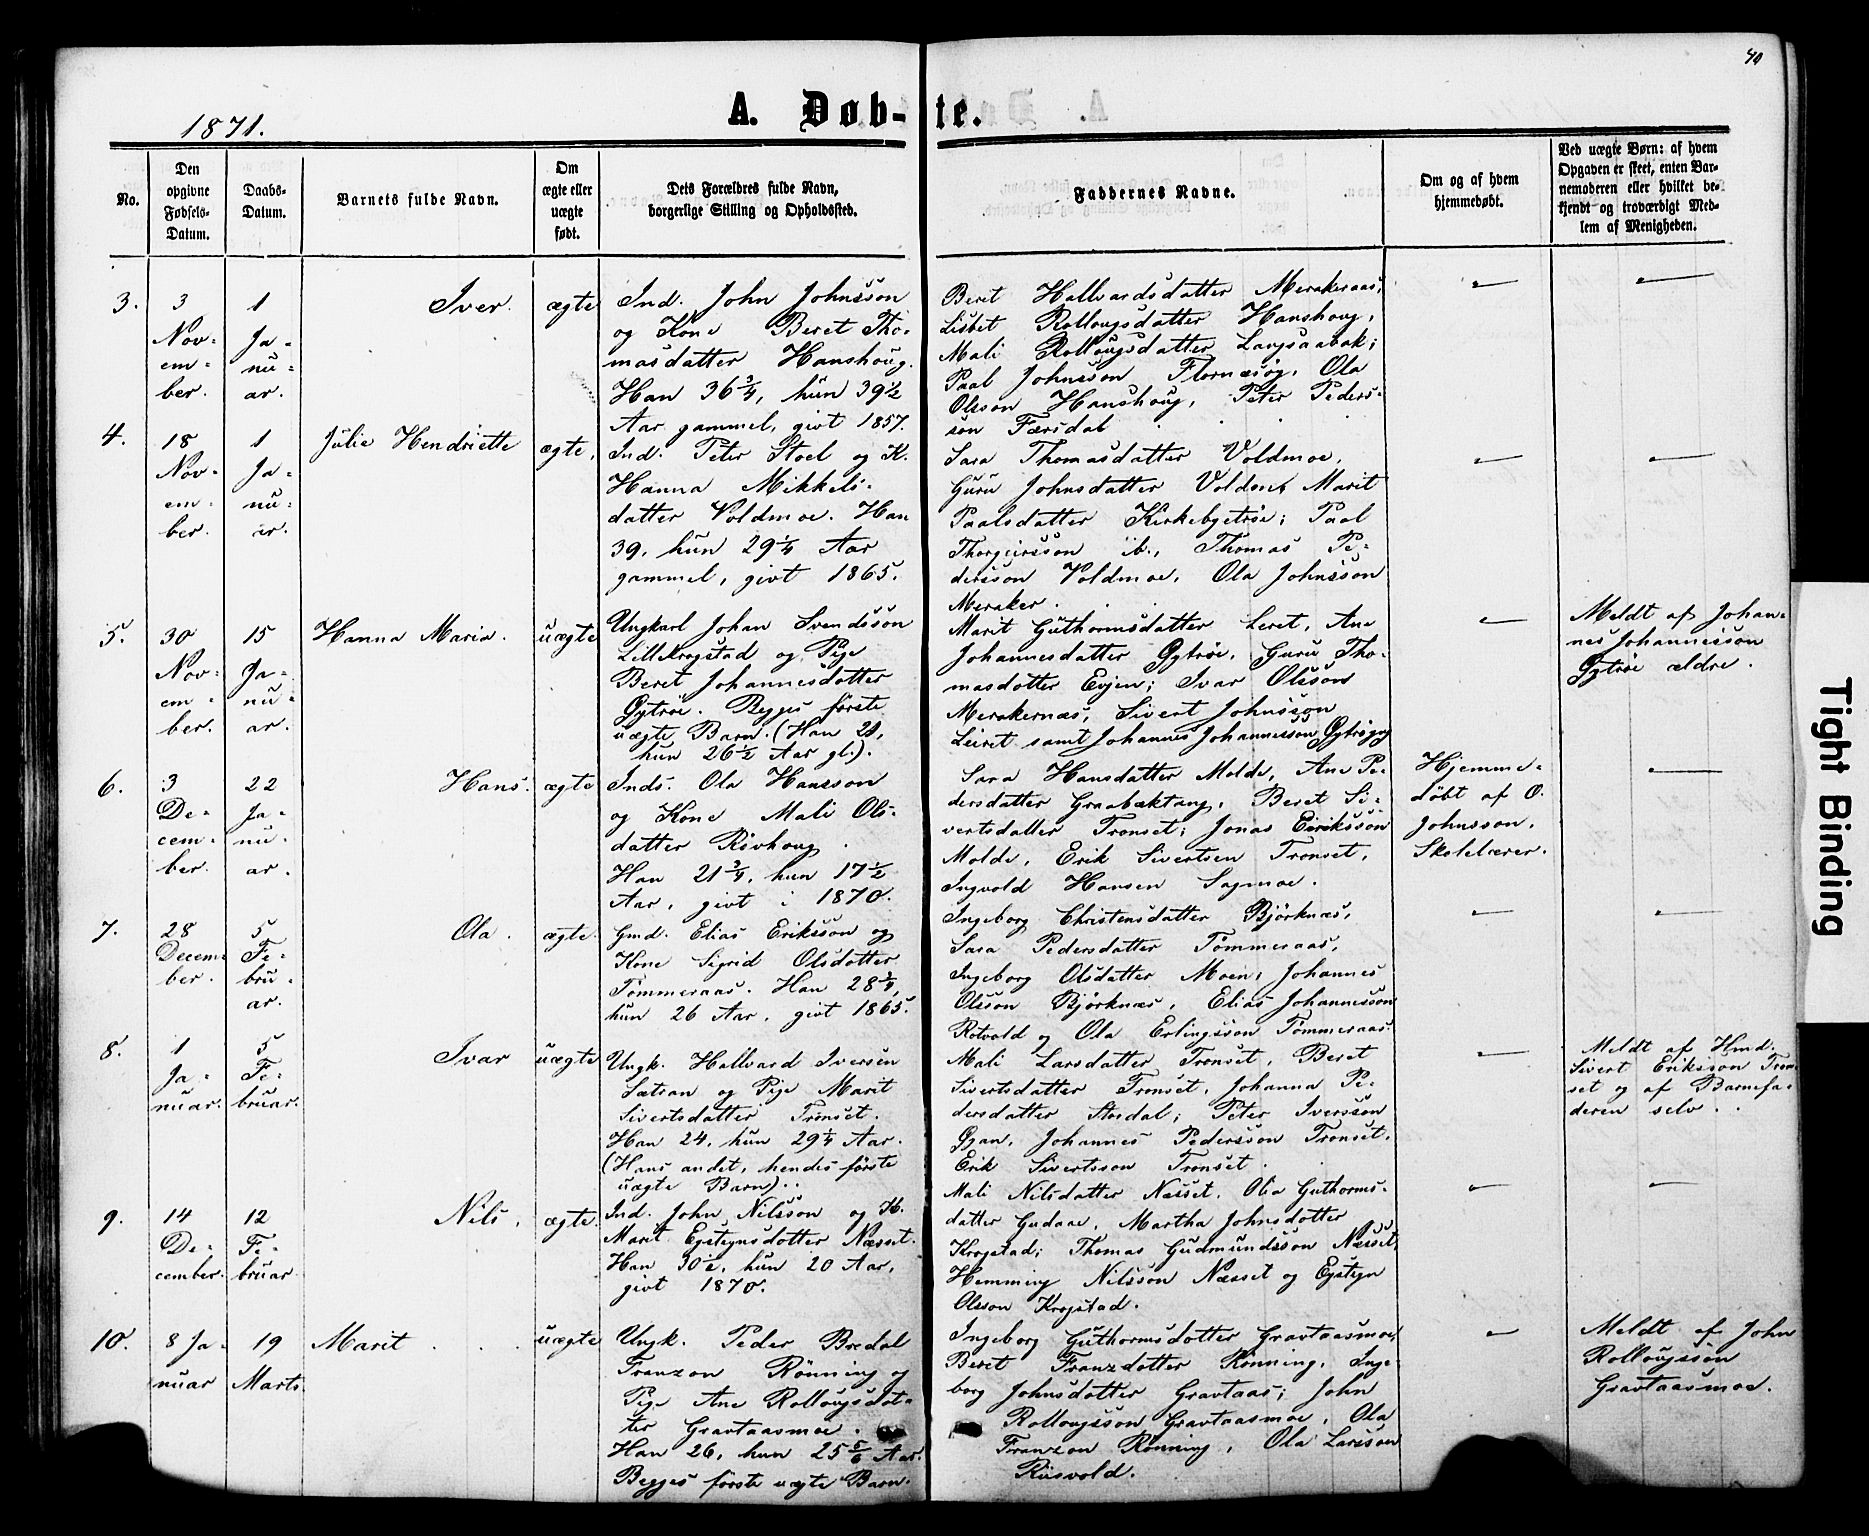 40
1871.
A. Døb-te.
No.
Den
opgivne
Fødsels-
Datum.
Daabs-
Datum.
Barnets fulde Navn.
Om
ægte eller
uægte
født.
Dets Forældres fulde Navn,
borgerlige Stilling og Opholdssted.
Faddernes Navne.
Om og af hvem
hjemmedøbt.
Ved uægte Børn: af hvem
Opgaven er skeet, enten Bar-
nemoderen eller hvilket be-
kjendt og troværdigt Med-
lem af Menigheden.
3.
3
Nov-
em-
ber.
1
Ja-
nu-
ar.
Iver.
ægte
Ind. John Johnsson
og Kone Beret Tho-
masdatter Hanshoug.
Han 36 3/4, hun 39 1/2
Aar gammel, givt 1857.
Beret Hallvardsdatter Merakeraas,
Lisbet Rollougsdatter Hanshoug,
Mali Rollougsdatter Langsaabak;
Paal Johnsson Flornæsøg, Ola
Olsson Hanshoug, Peter Peders-
son Færsdal
—
—
4.
18
Nov-
em-
ber.
1
Ja-
nu-
ar.
Julie Hendriette
ægte.
Ind. Peter Stoel og K.
Hanna Mikkels-
datter Voldmoe. Han
39, hun 29 1/4 Aar
gammel, givt 1865.
Sara Thomasdatter Voldmoe,
Guru Johnsdatter Voldmoe, Marit
Paalsdatter Kirkebytrøe; Paal
Thorgeirsson ib., Thomas Pe-
dersson Voldmoe, Ola Johnsson
Meraker.
—
—
5.
30
Nov-
em-
ber.
15
Ja-
nu-
ar.
Hanna Maria.
uægte
Ungkarl Johan Svendsson
Lillekrogstad og Pige
Beret Johannesdatter
Gytrøe. Begges første
uægte Barn. (Han 21,
hun 26 1/2 Aar gl.).
Marit Guthormsdatter Leret, Ane
Johannesdatter Gytrøe, Guru Tho-
masdatter Evjen; Ivar Olsson
Merakernæs, Sivert Johnsson
Leiret samt Johannes Johannesson Gytrøyng
—
Meldt af Johan-
nes Johannesson
Gytrøe ældre.
6.
3
De-
cem-
ber.
22
Ja-
nu-
ar.
Hans.
ægte
Inds. Ola Hansson
og Kone Mali Ols-
datter Rivhoug.
Han 21 3/4, hun 17 1/2
Aar, givt i 1870.
Sara Hansdatter Molde, Ane Pe-
dersdatter Graabæktang, Beret Si-
vertsdatter Tronset; Jonas Eeriksson
Molde, Erik Sivertsen Tronset,
Ingvold Hansen Sagmoe.
Hjemme-
døbt af O.
Johnsson,
Skolelærer.
—
7.
28
Decem-
ber.
5
Fe-
bru-
ar.
Ola.
ægte.
Gmd. Elias Eriksson og
Kone Sigrid Olsdatter
Tømmeraas. Han 28 1/4,
hun 26 Aar, givt 1865.
Ingeborg Christensdatter Bjørknæs,
Sara Pedersdatter Tømmeraas,
Ingeborg Olsdatter Moen; Johannes
Olsson Bjørknæs, Elias Johannesson
Rotvold og Ola Erlingsson Tømmeraas.
—
—
8.
1
Ja-
nuar.
5
Fe-
bruar.
Ivar
uægte
Ungk. Hallvard Iversen
Sætran og Pige Marit
Sivertsdatter Trønset.
Han 24, hun 29 1/4 Aar.
(Hans andet, hendes første
uægte Barn).
Mali Larsdatter Trønset, Beret
Sivertsdatter Tronset, Johanna Pe-
dersdatter Stordal; Peter Iversson
Gjan, Johannes Pedersson Tronset,
Erik Sivertsson Tronset.
—
Meldt af Hmd.
Sivert Eriksson Tron-
set og af Barnefa-
deren selv.
9.
14
De-
cember.
12
Fe-
bruar.
Nils.
ægte.
Ind. John Nilsson og K.
Marit Eysteynsdotter Næsset.
Han 30 1/2, hun 20 Aar,
givt 1870.
Mali Nilsdatter Næsset, Olia Guthorms-
datter Gudaae, Martha Johnsdotter
Krogstad; Thomas Gudmundsson Næsset,
Hemming Nilsson Næsset og Eysteyn
Olsson Krogstad.
—
—
10.
8 Ja-
nuar
19
Marts
Marit
uægte
Ungk. Peder Bredal
Franzon Rønning og
Pige Ane Rollougsdot-
ter Gravtaasmoe.
Han 26, hun 25 5/6 Aar.
Begges første uægte Barn.
Ingeborg Guthormsdotter Gravtaasmoe,
Beret Franzdotter Rønning, Inge-
borg Johnsdotter Gravtaas; John
Rollougsson Gravtaasmoe, Ola
Franzon Rønning, Ola Larsson
Rusvold.
—
Meldt af John
Rollougsson
Gravtaasmoe.
Tight Binding